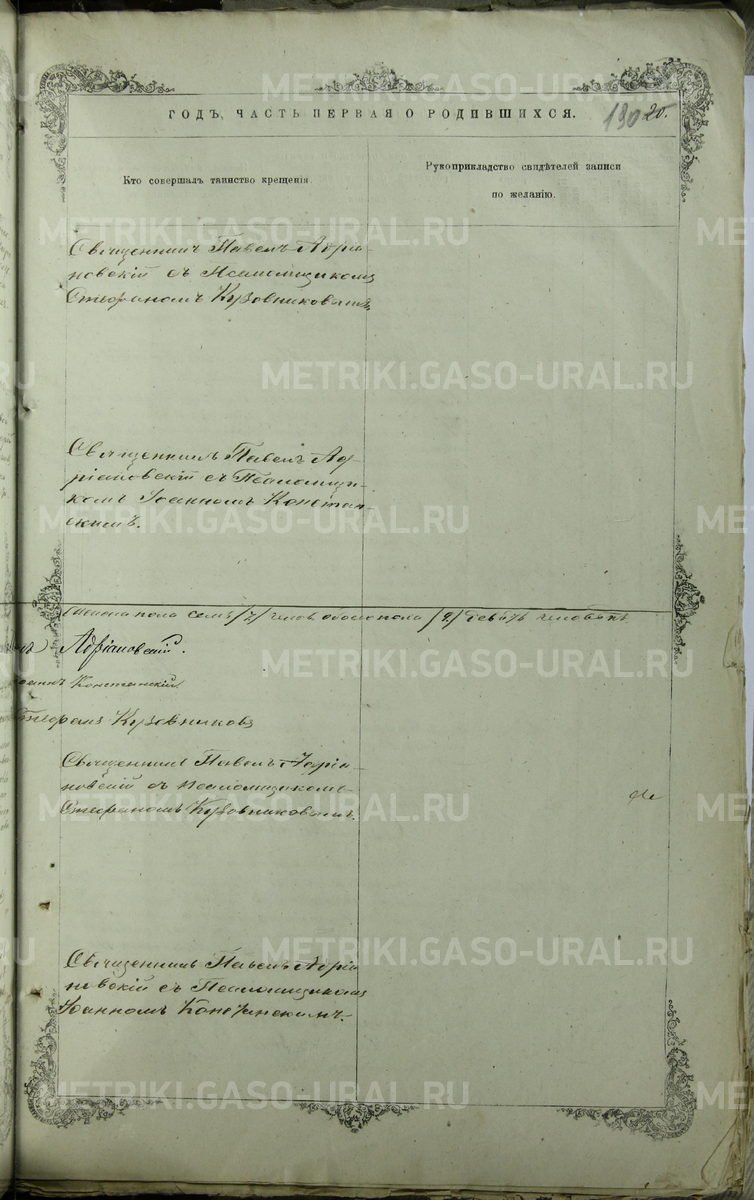 ГОДЪ, ЧАСТЬ ПЕРВАЯ О РОДИВШИХСЯ.
190 20.
Кто совершалъ таинство крещенія.
Рукоприкладство свидѣтелей записи
по желанію.
Священникъ Павелъ Адріа-
новскій съ Псаломщикомъ
Стефаномъ Кузовниковымъ
Священникъ Павелъ Ад-
ріановскій съ Псаломщи-
комъ Іоанномъ Констан-
скимъ.
женска пола семь /7/ челов. обоего пола /9/ девять человекъ
Адріановскій.
Констанскій
Стефанъ Кузовниковъ
Священникъ Павелъ Адріа-
новскій съ Псаломщикомъ
Стефаномъ Кузовниковымъ.
Священникъ Павелъ Адріа
новскій съ Псаломщикомъ
Іоанномъ Констанскимъ.
METRIKI.GASO-URAL.RU